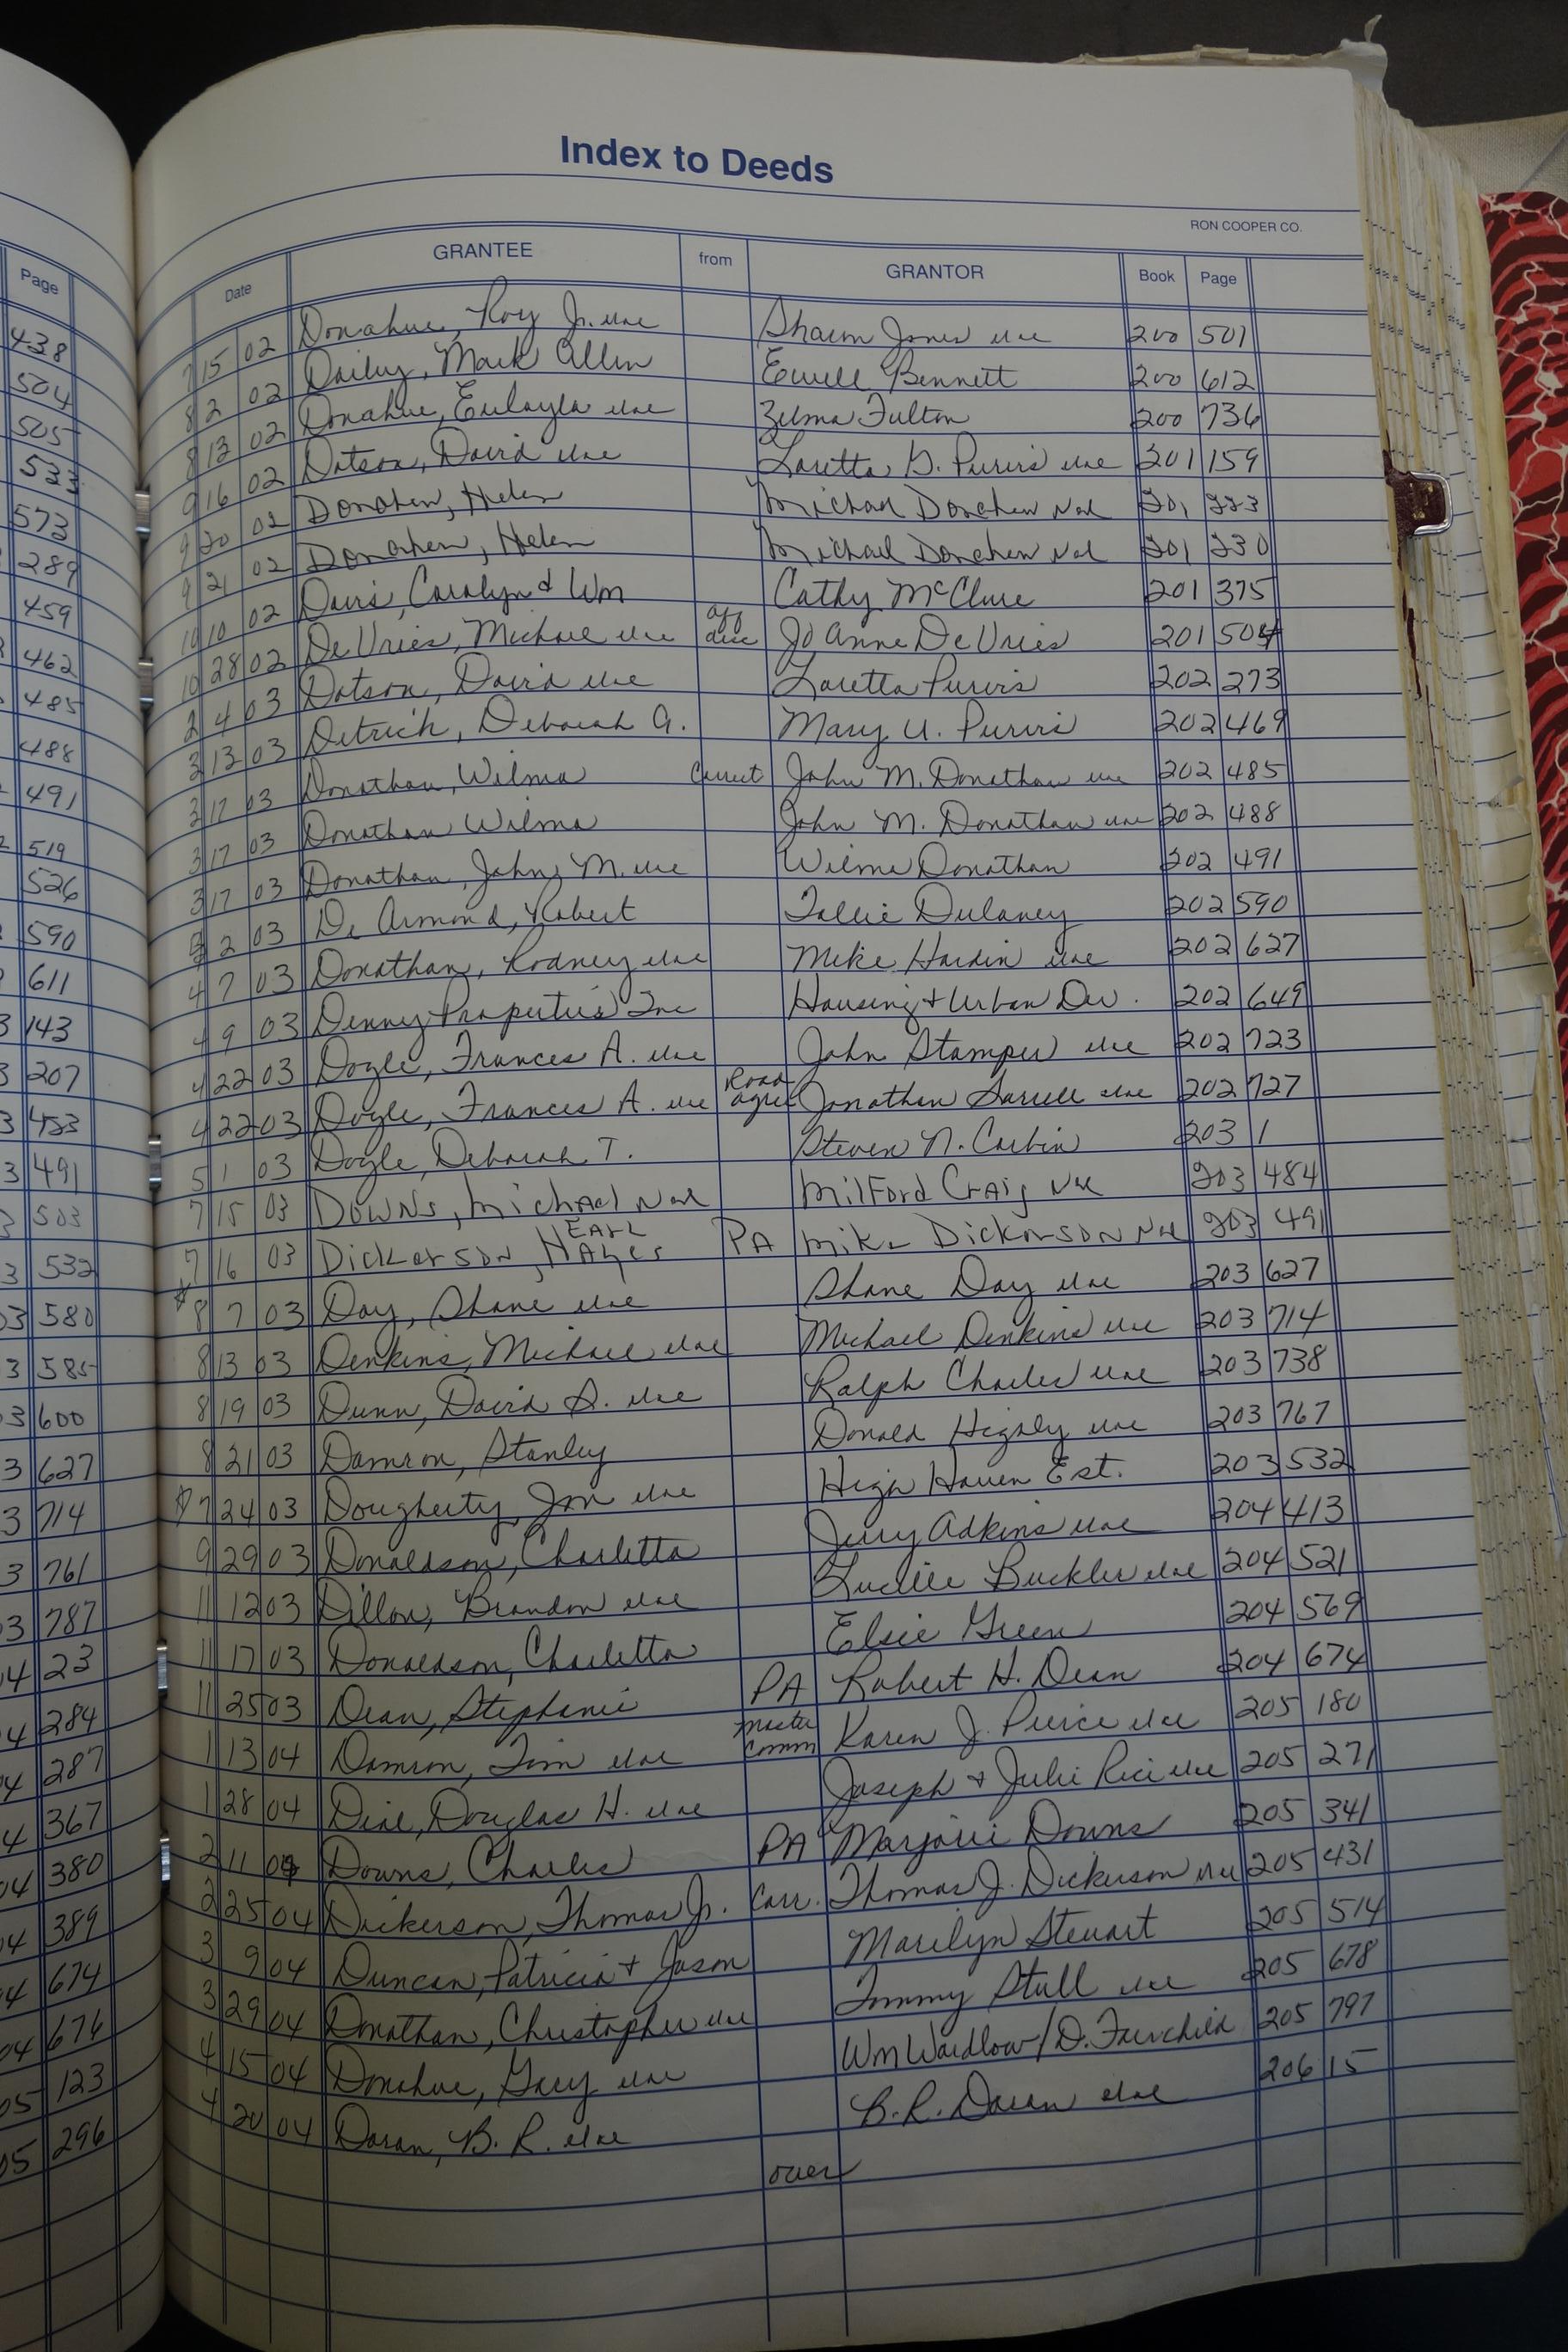 Index to Deeds
RON COOPER CO.
Page
Date GRANTEE from GRANTOR Book Page
438
504
505
533
573
289
459
462
485
488
491
519
526
590
611
143
207
453
491
503
532
580
585
600
627
714
761
787
23
284
287
367
380
389
674
676
123
296
7 15 02 Donahue, Roy Jr. uxe Sharon Jones uxe 200 501
8 2 02 Dailey, Mark Allen Ewell Bennett 200 612
8 13 02 Donahue, Eulayla uxe Zelma Fulton 200 736
9 16 02 Dotson, David uxe Loretta G. Purvis uxe 201 159
9 20 02 Donohew, Helen Michael Donohew uxe 201 223
9 21 02 Donohew, Helen Michael Donohew uxe 201 230
10 10 02 Davis, Carolyn & Wm Cathy McClure 201 375
10 28 02 DeVries, Michael uxe aff disc Jo Anne DeVries 201 504
2 4 03 Dotson, David uxe Loretta Purvis 202 273
3 13 03 Detrich, Deborah A. Mary U. Purvis 202 469
3 17 03 Donathan, Wilma Correct John M. Donathan uxe 202 485
3 17 03 Donathan Wilma John M. Donathan uxe 202 488
3 17 03 Donathan, John M. uxe Wilma Donathan 202 491
2 03 De Armond, Robert Tollie Dulaney 202 590
4 7 03 Donathan, Rodney uxe Mike Hardin uxe 202 627
4 9 03 Denney Properties Inc Housing & Urban Dev. 202 649
4 22 03 Doyle, Frances A. uxe John Stamper uxe 202 723
4 22 03 Doyle, Frances A. uxe Road agree Jonathan uxe 202 727
5 1 03 Doyle, Deborah T. Steven N. Corbin 203 1
7 15 03 Downs, Michael uxe Milford Craig uxe 203 484
7 16 03 Dickerson, Earl Hayes PA Mike Dickerson uxe 203 491
* 8 7 03 Day, Shane uxe Shane Day uxe 203 627
8 13 03 Denkins, Michael uxe Michael Denkins uxe 203 714
8 19 03 Dunn, David S. uxe Ralph Charles uxe 203 738
8 21 03 Damron, Stanley Donald Higley uxe 203 767
* 7 24 03 Dougherty, Jon uxe High Haven Est. 203 532
9 29 03 Donaldson, Charletta Jerry Adkins uxe 204 413
11 12 03 Dillon, Brandon uxe Lucille Buckler uxe 204 521
11 17 03 Donaldson, Charletta Elsie Green 204 569
11 25 03 Dean, Stephanie PA Robert H. Dean 204 674
1 13 04 Damron, Tim uxe Master Comm Karen J. Peirce uxe 205 180
1 28 04 Dial, Douglas H. uxe Joseph & Julie Rice uxe 205 271
2 11 04 Downs, Charles PA Marjorie Downs 205 341
2 25 04 Dickerson, Thomas Jr. Corr. Thomas J. Dickerson uxe 205 431
3 9 04 Duncan, Patricia & Jason Marilyn Stewart 205 514
3 29 04 Donathan, Christopher uxe Tommy Stull uxe 205 678
4 15 04 Donahue, Gary uxe Wm Wardlow/D. Fairchild 205 797
4 20 04 Doran, B. R. uxe B. R. Doran uxe 206 15
over